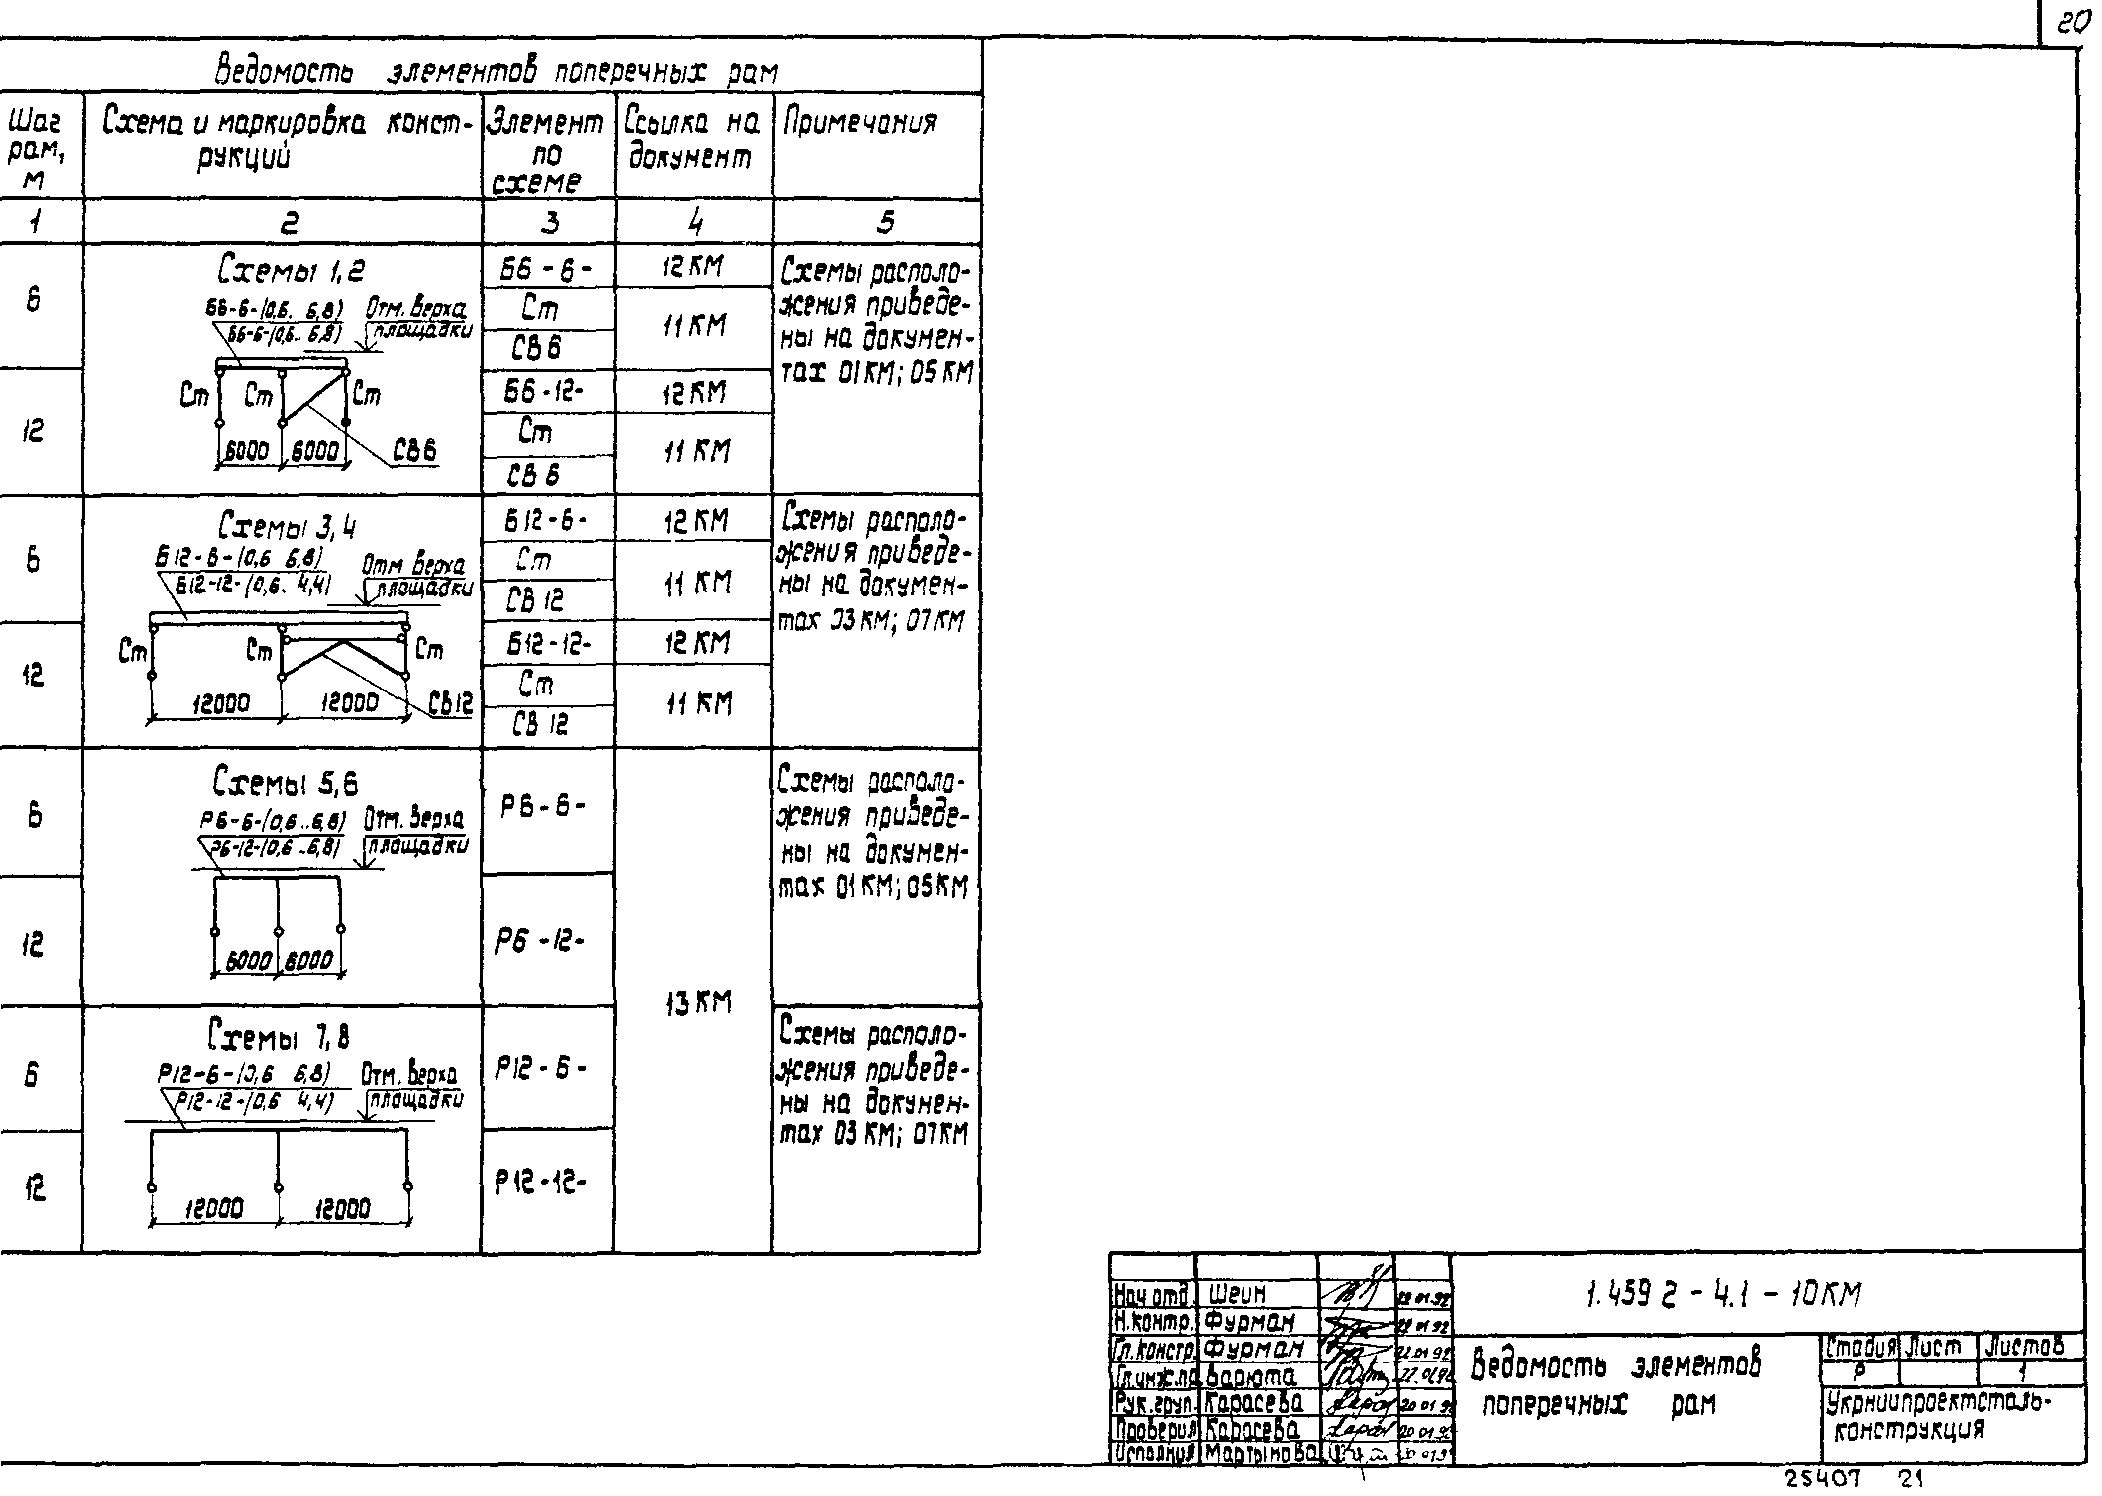 20
Ведомость элементов поперечных рам
Шаг рам, м
Схема и маркировка конст-
рукций
Элемент по схеме
Ссылка на документ
Примечания
1 2 3 4 5
6
12
Схемы 1,2
Б6-6-(0,6.. 6,8)
Б6-6-(0,6.. 6,8)
Отм. верха
площадки
Ст Ст Ст
6000 6000
СВ6
Б6-6-
12КМ
Ст
СВ6
11КМ
Б6-12-
12КМ
Ст
СВ6
11КМ
Схемы располо-
жения приведе-
ны на докумен-
тах 01КМ; 05КМ
6
12
Схемы 3,4
Б12-6-(0,6 6,8)
Б12-12-(0,6.. 4,4)
Отм верха
площадки
Ст Ст Ст
12000 12000
СВ12
Б12-6-
12КМ
Ст
СВ12
11КМ
Б12-12-
12КМ
Ст
СВ12
11КМ
Схемы располо-
жения приведе-
ны на докумен-
тах 03КМ; 07КМ
6
12
Схемы 5,6
Р6-6-(0,6..6,8)
Р6-12-(0,6..6,8)
Отм. верха
площадки
6000 6000
Р6-6-
Р6-12-
13КМ
Схемы располо-
жения приведе-
ны на докумен-
тах 01КМ; 05КМ
6
12
Схемы 7,8
Р12-6-(0,6 6,8)
Р12-12-(0,6 4,4)
Отм. верха
площадки
12000 12000
Р12-6-
Р12-12-
Схемы располо-
жения приведе-
ны на докумен-
тах 03КМ; 07КМ
Нач отд. Шеин
Н.контр. Фурман 22 01 92
Гл.констр. Фурман 22 01 92
Гл.инж.пр Варюта
Рук.груп. Карасева 20 01 92
Проверил Карасева 20 01 92
Исполнил Мартынова
1.459 2 - 4.1 - 10КМ
Ведомость элементов
поперечных рам
Стадия Лист Листов
Р 1
Укрниипроектсталь-
конструкция
25407 21